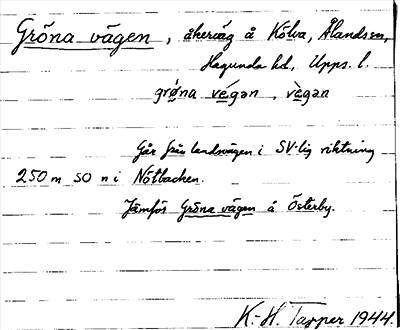 Gröna vägen, åkerväg å Kölva, Ålandssn,
Hagunda hd, Upps. l.
grǿna vegan, vègan
Går från landsvägen i SV-lig riktning
250 m SO n i Nötbacken.
Jämför Gröna vägen å Österby.
K.-H. Tapper 1944.